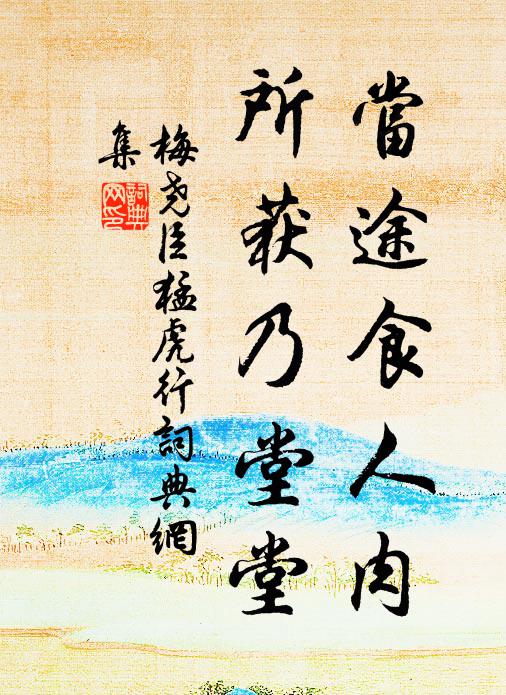 當途食人肉
所获乃堂堂
梅尧臣猛虎行詞典網
集
詞典
网印